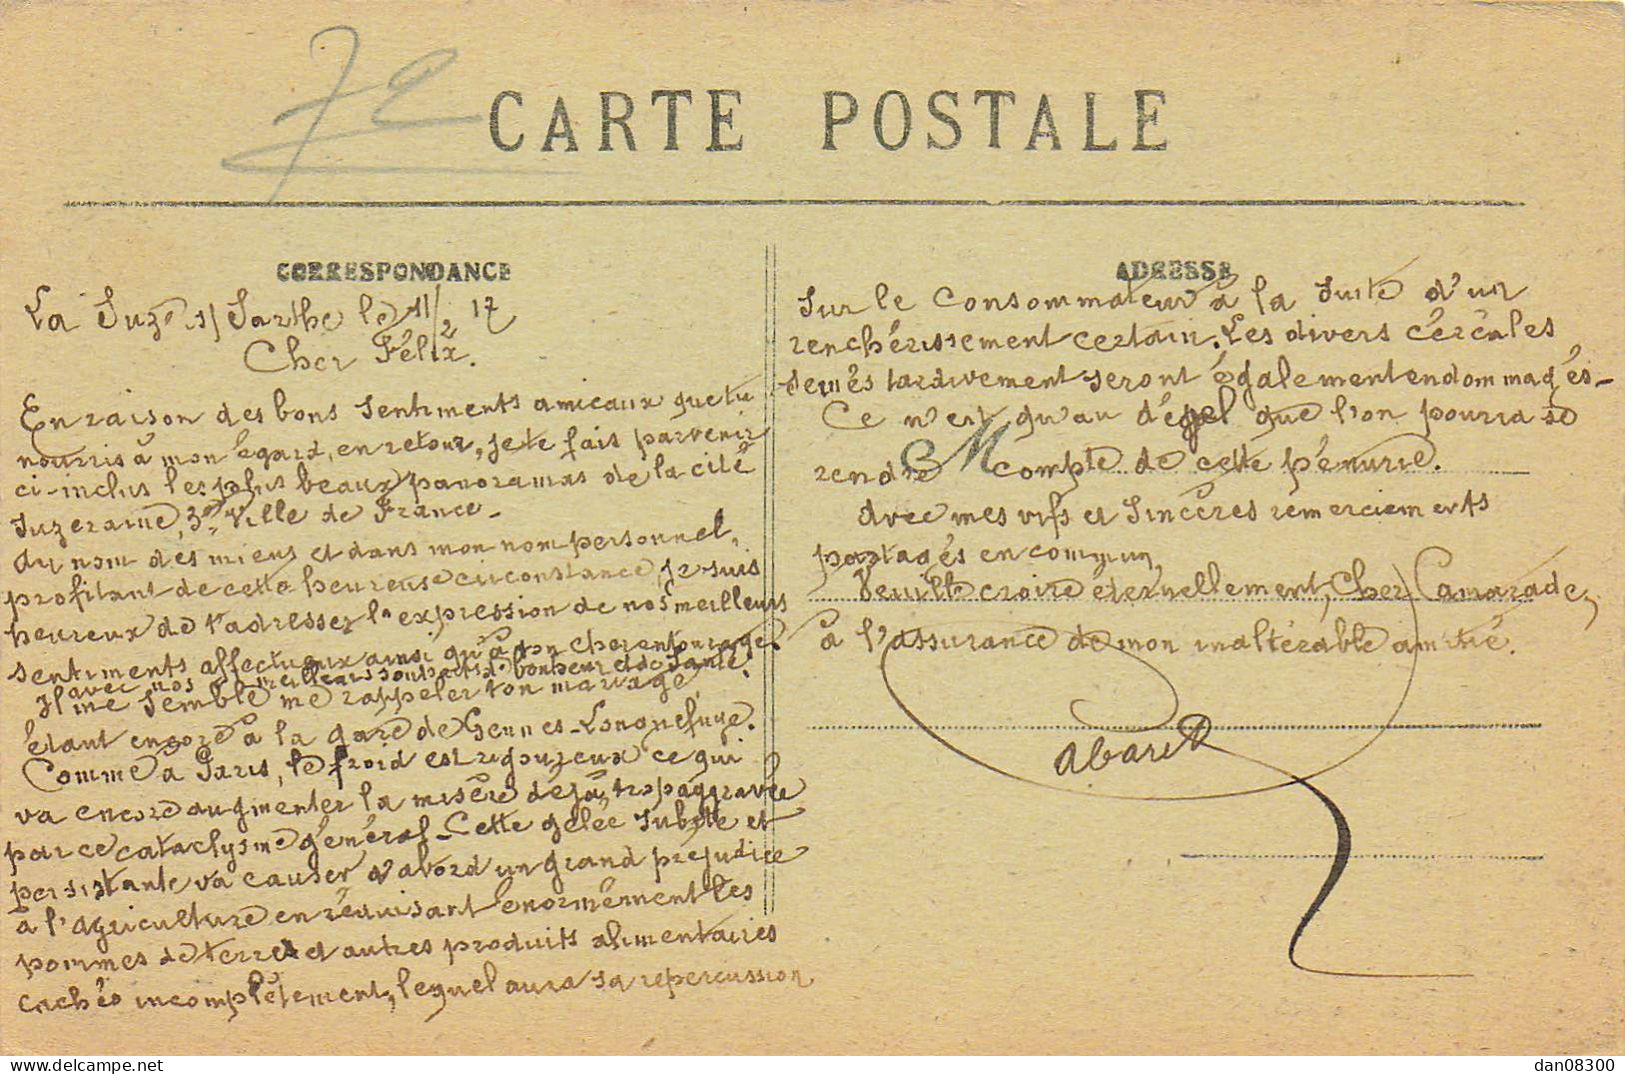 7e
CARTE POSTALE
CORRESPONDANCE
La Suze s/ Sarthe le 11/2 17
Cher Félix.
En raison des bons sentiments amicaux que tu
nourris à mon égard, en retour, je te fais parvenir
ci-inclus les plus beaux panoramas de la cité
Suzeraine, 3e Ville de France_
Au nom des miens et dans mon nom personnel,
profitant de cette heureuse circonstance, je suis
heureux de t'adresser l'expression de nos meilleurs
sentiments affectueux ainsi qu'à ton cher entourage
avec nos meilleurs souhaits de bonheur et de santé.
Il me semble me rappeler ton mariage,
étant encore à la gare de Gennes-Longuefuye.
Comme à Paris, le froid est rigoureux ce qui
va encore augmenter la misère déjà, trop aggravée
par ce cataclysme général_ Cette gelée subite et
persistante va causer d'abord un grand préjudice
à l'agriculture en réduisant énormément les
pommes de terre et autres produits alimentaires
cachés incomplètement, lequel aura sa repercussion
ADRESSE
sur le consommateur à la suite d'un
renchérissement certain. Les divers céréales
semés tardivement seront également endommagés_
Ce n'est qu'au dégel que l'on pourra se
rendre compte de cette pénurie.
M
Avec mes vifs et sincères remerciements
partagés en commun,
Veuille croire éternellement, Cher Camarade,
à l'assurance de mon inaltérable amitié.
Abaret
delcampe.net
dan08300